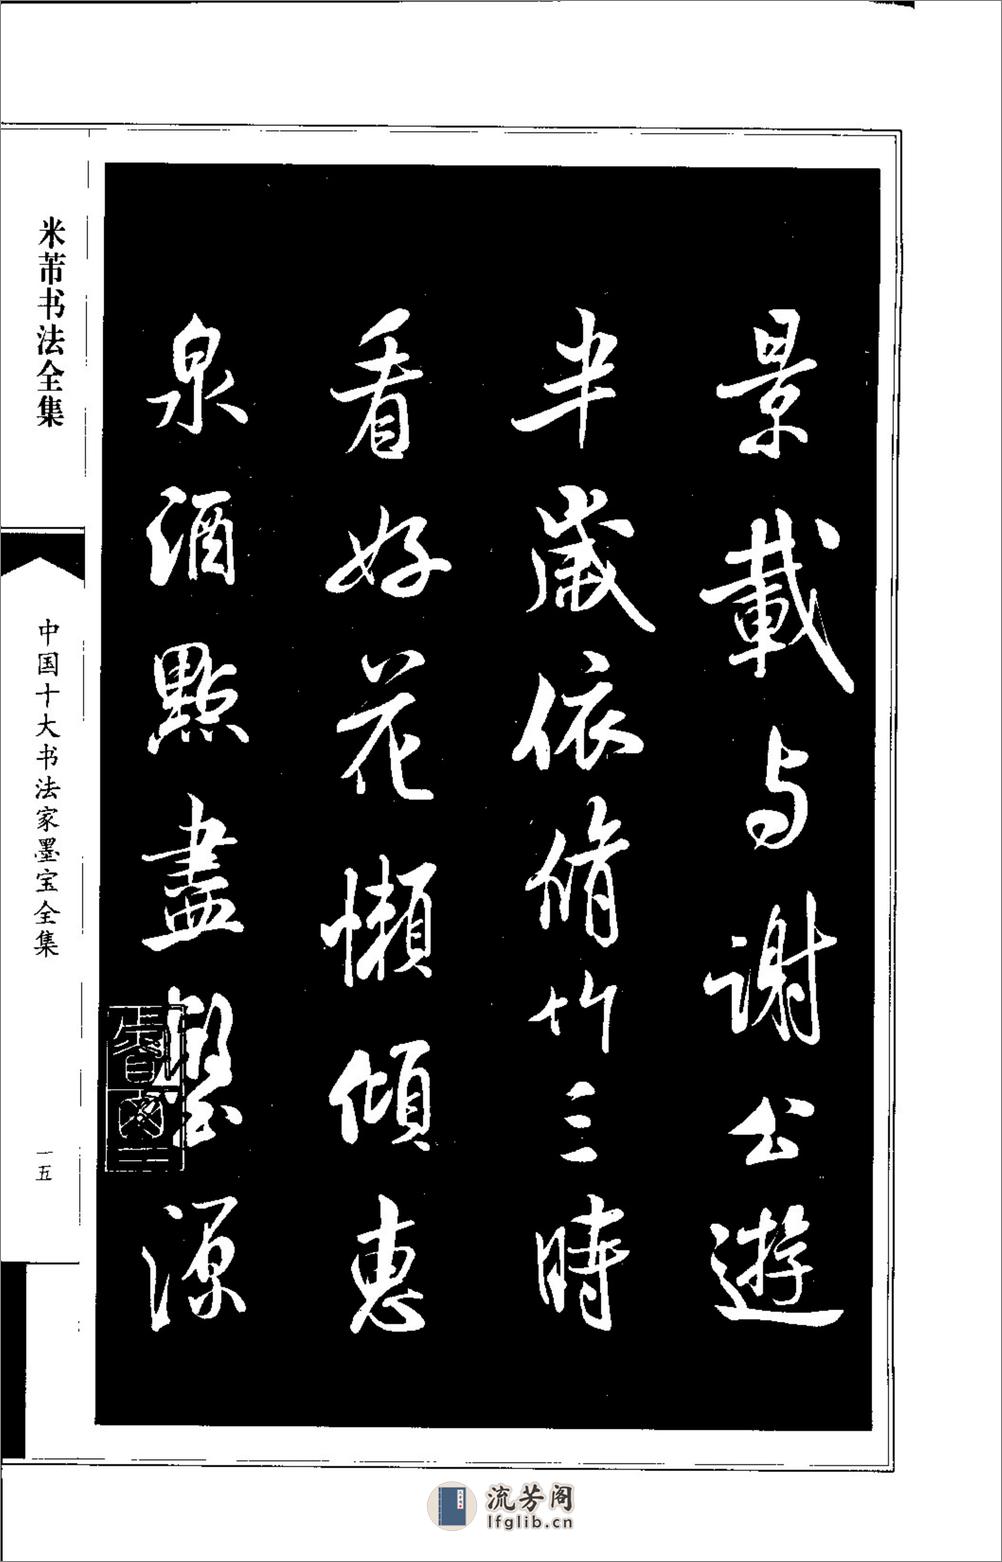 景載与謝公遊
半歲依脩竹三時
看好花懶傾惠
泉酒點盡壑源
米芾书法全集
中国十大书法家墨宝全集
一五
流芳阁
lfglib.cn